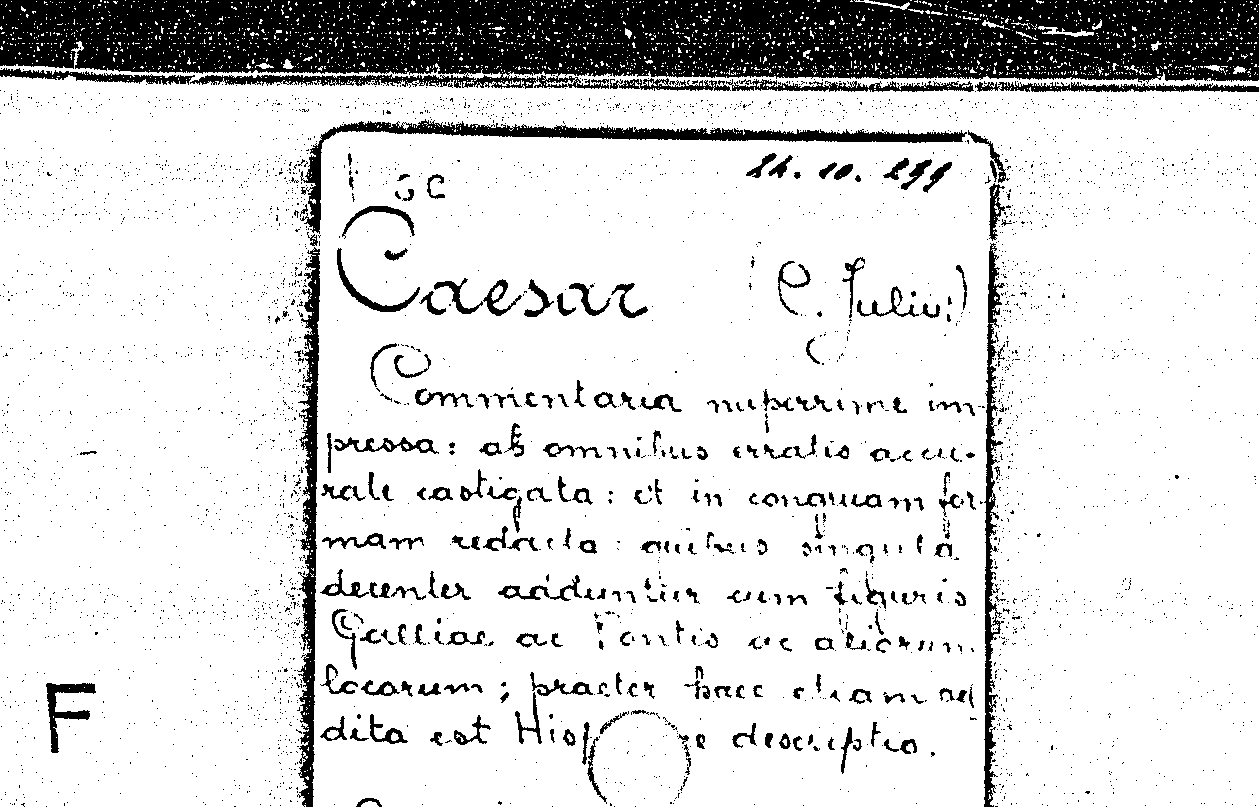 24. 10. 299
Caesar (C. Juliu:)
Commentaria nuperrime im-
pressa: ab omnibus erratis accu-
rate castigata: et in congruam for-
mam redacta: quibus singula
decenter adduntur cum figuris
Galliae ac Pontis ac aliorum
locorum; praeter haec etiam ad
dita est descriptio.
F